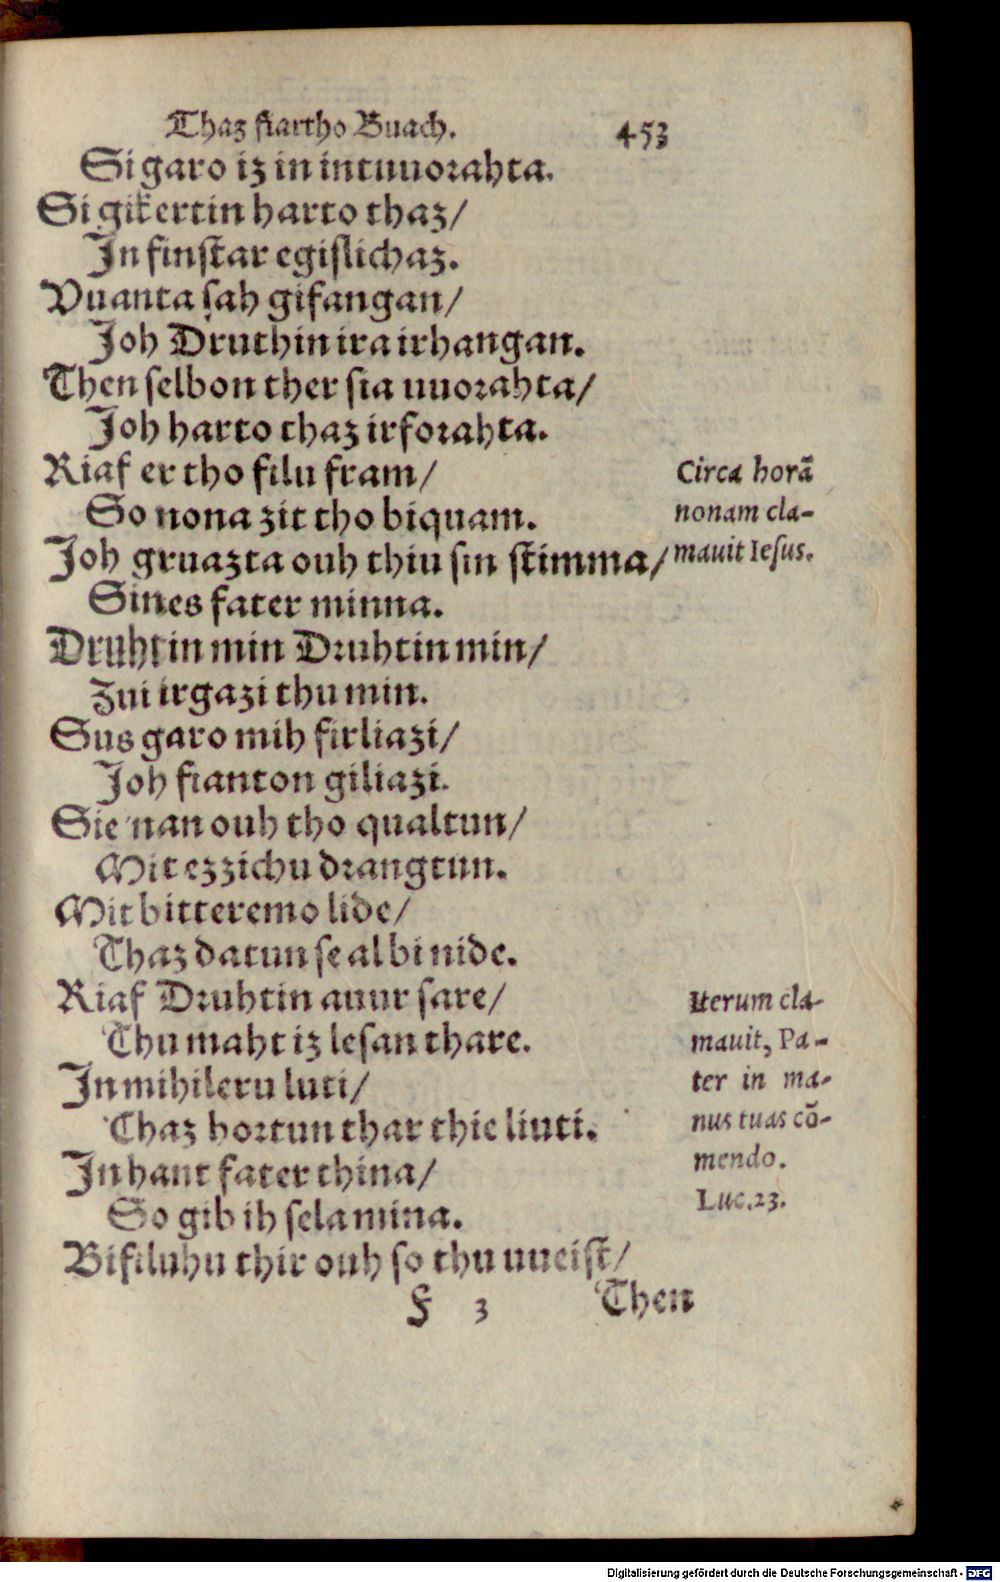 Thaz fiartho Buach. 453
Si garo iz in intuuorahta.
Si gikertin harto thaz/
In finstar egislichaz.
Vuanta sah gifangan/
Joh Druthin ira irhangan.
Then selbon ther sia uuorahta/
Joh harto thaz irforahta.
Riaf er tho filu fram/
So nona zit tho biquam.
Joh gruazta ouh thiu sin stimma/
Sines fater minna.
Druhtin min Druhtin min/
Zui irgazi thu min.
Sus garo mih firliazi/
Joh fianton giliazi.
Sie nan ouh tho qualtun/
Mit ezzichu drangtun.
Mit bitteremo lide/
Thaz datun se al bi nide.
Riaf Druhtin auur sare/
Thu maht iz lesan thare.
In mihileru luti/
Thaz hortun thar thie liuti.
In hant fater thina/
So gib ih sela mina.
Bifiluhu thir ouh so thu uueist/
F 3 Then
Circa horā
nonam cla-
mauit Iesus.
Iterum cla-
mauit, Pa-
ter in ma-
nus tuas cō-
mendo.
Luc. 23.
Digitalisierung gefördert durch die Deutsche Forschungsgemeinschaft - DFG